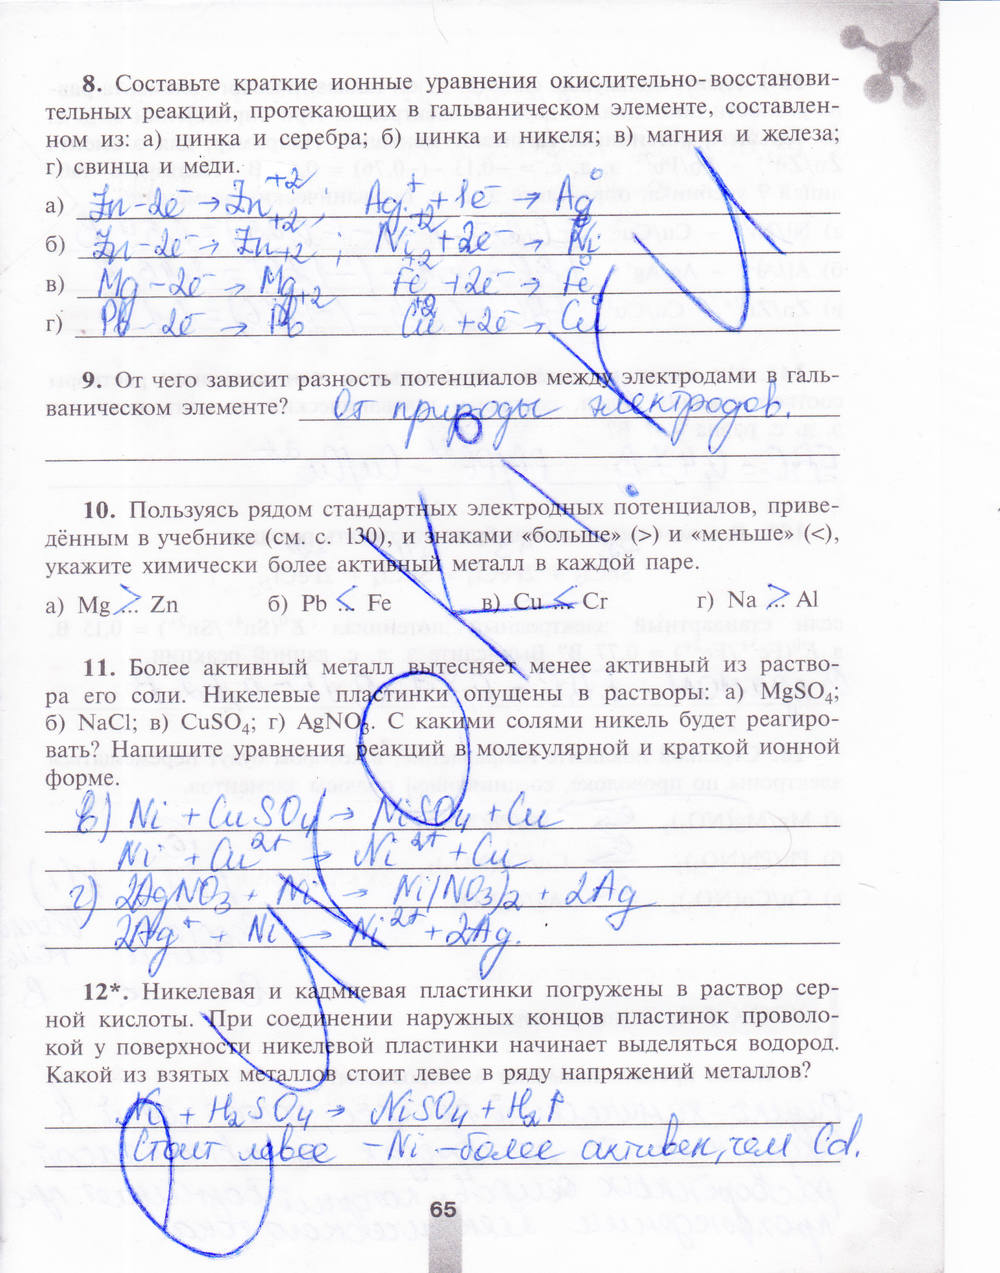 8. Составьте краткие ионные уравнения окислительно-восстанови-
тельных реакций, протекающих в гальваническом элементе, составлен-
ном из: а) цинка и серебра; б) цинка и никеля; в) магния и железа;
г) свинца и меди.
а) Zn - 2ē → Zn⁺²; Ag⁺ + 1ē → Ag⁰
б) Zn - 2ē → Zn⁺²; Ni⁺² + 2ē → Ni⁰
в) Mg - 2ē → Mg⁺² Fe⁺² + 2ē → Fe⁰
г) Pb - 2ē → Pb⁺² Cu⁺² + 2ē → Cu⁰
9. От чего зависит разность потенциалов между электродами в галь-
ваническом элементе? От природы электродов.
10. Пользуясь рядом стандартных электродных потенциалов, приве-
дённым в учебнике (см. с. 130), и знаками «больше» (>) и «меньше» (<),
укажите химически более активный металл в каждой паре.
а) Mg >... Zn б) Pb <... Fe в) Cu <... Cr г) Na >... Al
11. Более активный металл вытесняет менее активный из раство-
ра его соли. Никелевые пластинки опущены в растворы: а) MgSO₄;
б) NaCl; в) CuSO₄; г) AgNO₃. С какими солями никель будет реагиро-
вать? Напишите уравнения реакций в молекулярной и краткой ионной
форме.
в) Ni + CuSO₄ → NiSO₄ + Cu
Ni + Cu²⁺ → Ni²⁺ + Cu
г) 2AgNO₃ + Ni → Ni(NO₃)₂ + 2Ag
2Ag⁺ + Ni → Ni²⁺ + 2Ag.
12*. Никелевая и кадмиевая пластинки погружены в раствор сер-
ной кислоты. При соединении наружных концов пластинок проволо-
кой у поверхности никелевой пластинки начинает выделяться водород.
Какой из взятых металлов стоит левее в ряду напряжений металлов?
Ni + H₂SO₄ → NiSO₄ + H₂↑
Стоит левее - Ni - более активен, чем Cd.
65